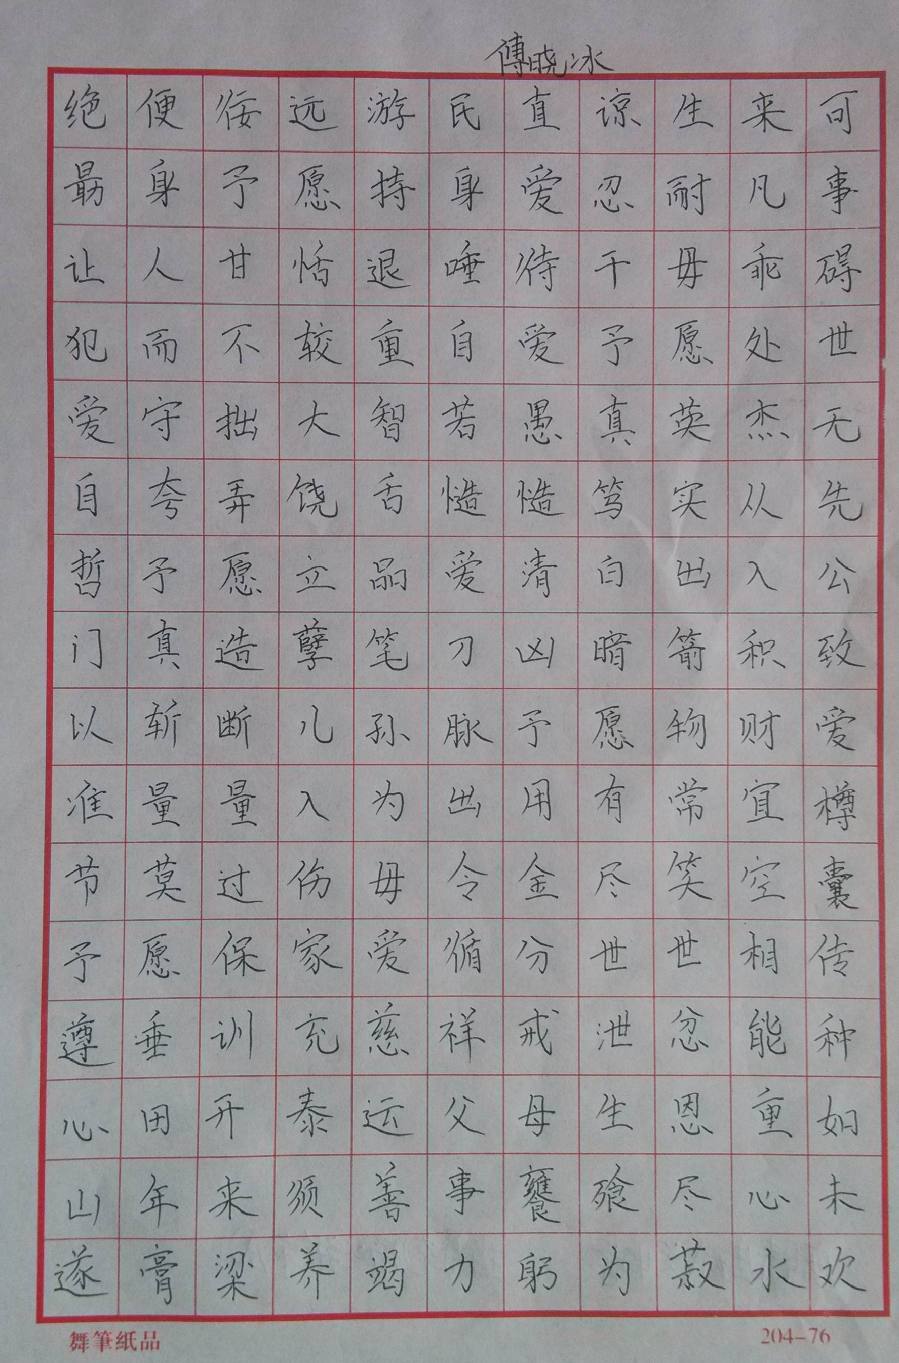 傅晓冰
绝便佞远游民直谅生来可
勗身予愿持身爱忍耐凡事
让人甘恬退唾待干毋乖碍
犯而不较重自爱予愿处世
爱守拙大智若愚真英杰无
自夸弄饶舌慥慥笃实从先
哲予愿立品爱清白出入公
门真造孽笔刀凶暗箭积致
以斩断儿孙脉予愿物财爱
准量量入为出用有常宜樽
节莫过伤毋令金尽笑空囊
予愿保家爱循分世世相传
遵垂训充慈祥戒泄忿能种
心田开泰运父母生恩重如
山年来须善事饔飧尽心未
遂膏梁养竭力躬为菽水欢
舞筆紙品
204-76